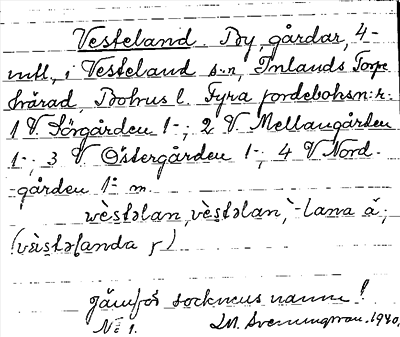 Vesteland. By, gårdar, 4-
mtl, i Vesteland s:n, Inlands Torpe
härad, Bohus l. Fyra jordebohsn:r:
1 V Sörgården 1-; 2 V Mellangården
1-; 3 V Östergården 1-; 4 V Nord-
gården 1= m
wèstəlan, vèstəlan, -lana ä;
(vàistəlanda r)
Jämför socknens namn!
No 1. 1940.